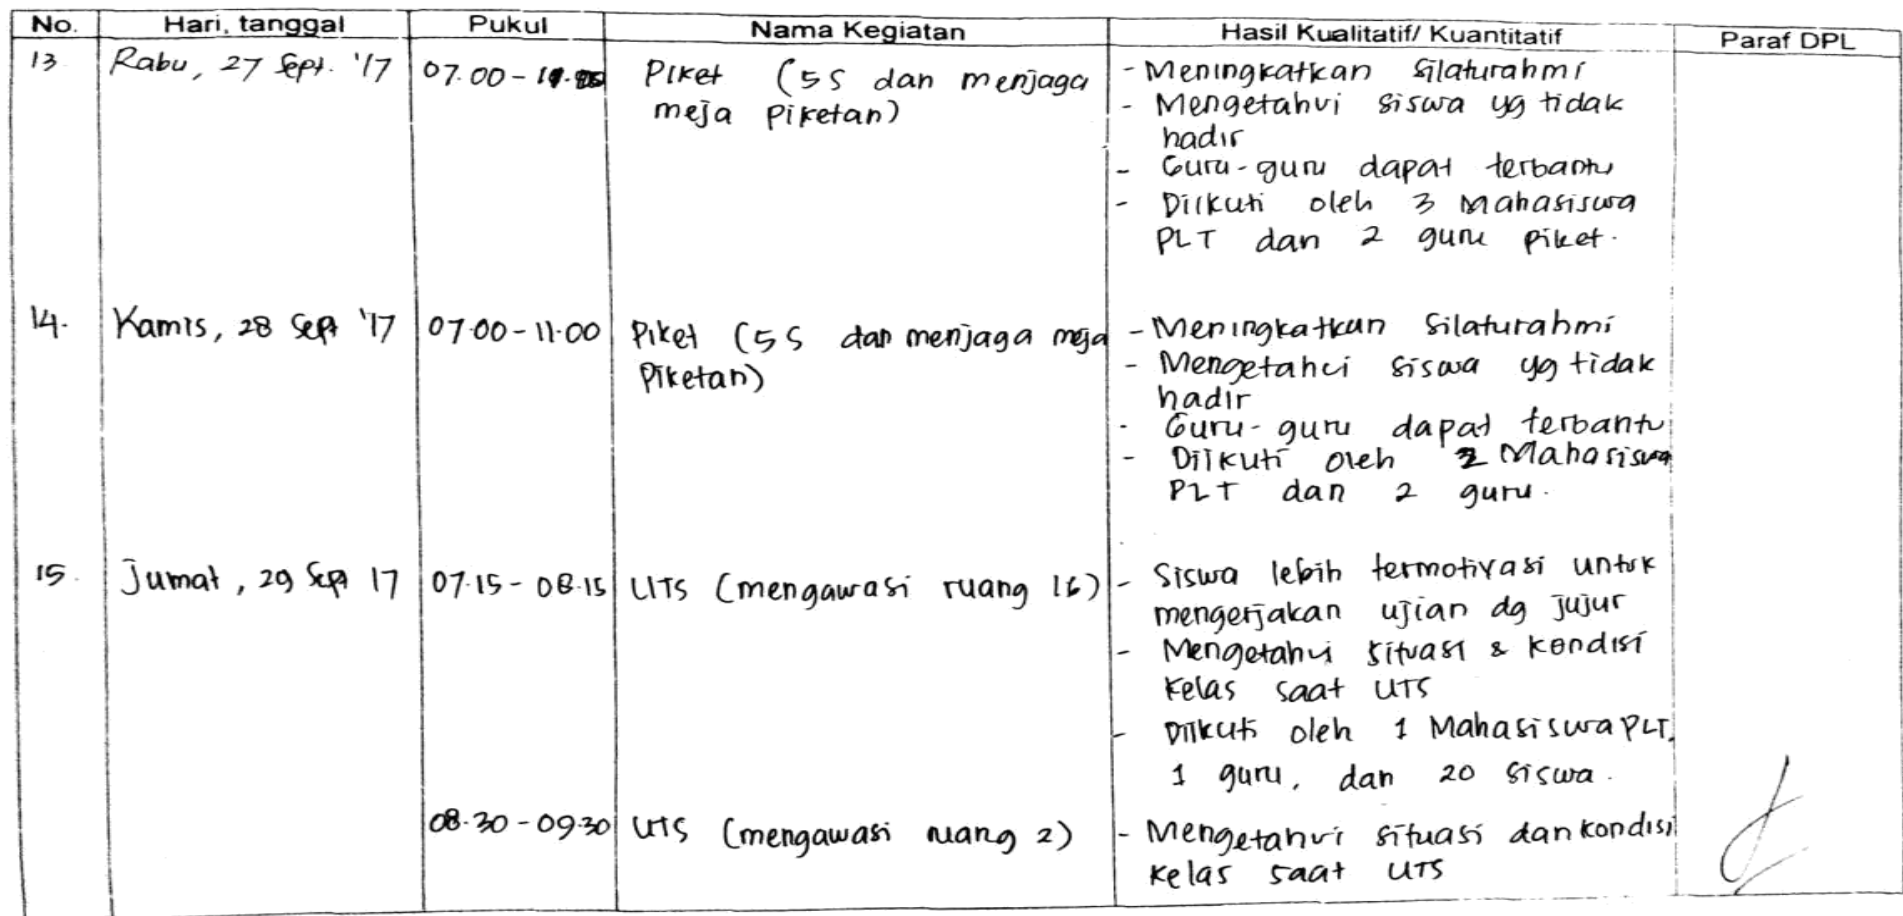 No. Hari, tanggal Pukul Nama Kegiatan Hasil Kualitatif/ Kuantitatif Paraf DPL
13 Rabu, 27 Sept. '17 07.00 - Piket (5S dan menjaga - Meningkatkan silaturahmi
meja piketan) - Mengetahui siswa yg tidak
hadir
- Guru-guru dapat terbantu
- Diikuti oleh 3 Mahasiswa
PLT dan 2 guru piket.
14. Kamis, 28 Sept '17 07.00 - 11.00 Piket (5S dan menjaga meja - Meningkatkan silaturahmi
Piketan) - Mengetahui siswa yg tidak
hadir
- Guru-guru dapat terbantu
- Diikuti oleh 2 Mahasiswa
PLT dan 2 guru.
15. Jumat, 29 Sept 17 07.15 - 08.15 UTS (mengawasi ruang 16) - Siswa lebih termotivasi untuk
mengerjakan ujian dg jujur
- Mengetahui situasi & kondisi
kelas saat UTS
- Diikuti oleh 1 Mahasiswa PLT,
1 guru, dan 20 siswa.
08.30 - 09.30 UTS (mengawasi ruang 2) - Mengetahui situasi dan kondisi
kelas saat UTS